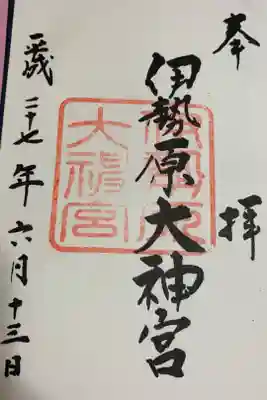 奉拝
伊勢原大神宮
伊勢原大神宮
平成二十七年六月十三日